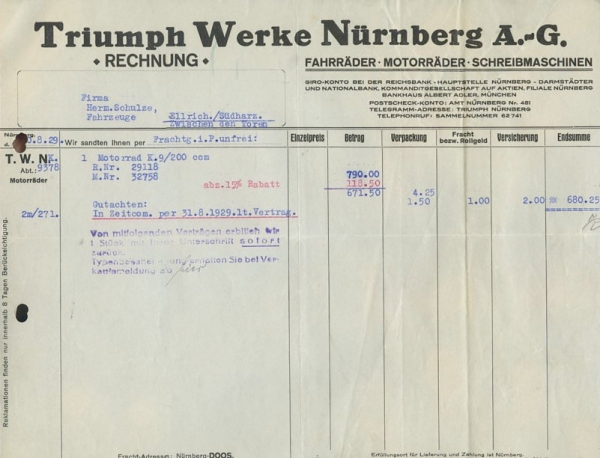 Triumph Werke Nürnberg A.-G.
RECHNUNG
FAHRRÄDER · MOTORRÄDER · SCHREIBMASCHINEN
GIRO-KONTO BEI DER REICHSBANK - HAUPTSTELLE NÜRNBERG - DARMSTÄDTER
UND NATIONALBANK, KOMMANDITGESELLSCHAFT AUF AKTIEN, FILIALE NÜRNBERG
BANKHAUS ALBERT ADLER, MÜNCHEN
POSTSCHECK-KONTO: AMT NÜRNBERG Nr. 451
TELEGRAMM-ADRESSE: TRIUMPH NÜRNBERG
TELEPHONRUF: SAMMELNUMMER 62741
Firma
Herm.Schulze,
Fahrzeuge Ellrich./Südharz.
Zwischen den Toren
.8.29. Wir sandten Ihnen per Frachtg.i.P.unfrei:
Einzelpreis Betrag Verpackung Fracht bezw. Rollgeld Versicherung Endsumme
T. W. N. K. 1 Motorrad K.9/200 ccm 790.00
Abt.: 9378 R.Nr. 29118
Motorräder M.Nr. 32758
abz.15% Rabatt 118.50
671.50 4.25
Gutachten: 1.50 1.00 2.00 680.25
2m/271. In Zeitcom. per 31.8.1929.lt.Vertrag.
Von mitfolgenden Verträgen erbitten wir
1 Stück mit Ihrer Unterschrift sofort
zurück.
erhalten Sie bei Ver-
kaufsmeldung zu
Reklamationen finden nur innerhalb 8 Tagen Berücksichtigung.
Fracht-Adresse: Nürnberg-DOOS.
Erfüllungsort für Lieferung und Zahlung ist Nürnberg.